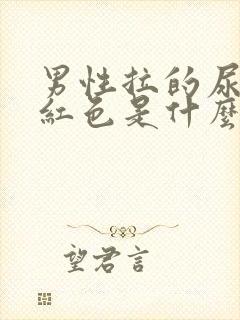 男性拉的尿
紅色是什麼
望君言